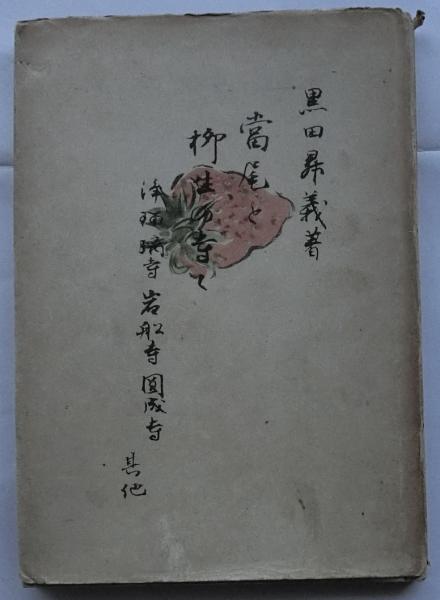 黒田曻義著
當尾と
柳生の寺〻
浄瑠璃寺 岩船寺 圓成寺
其他